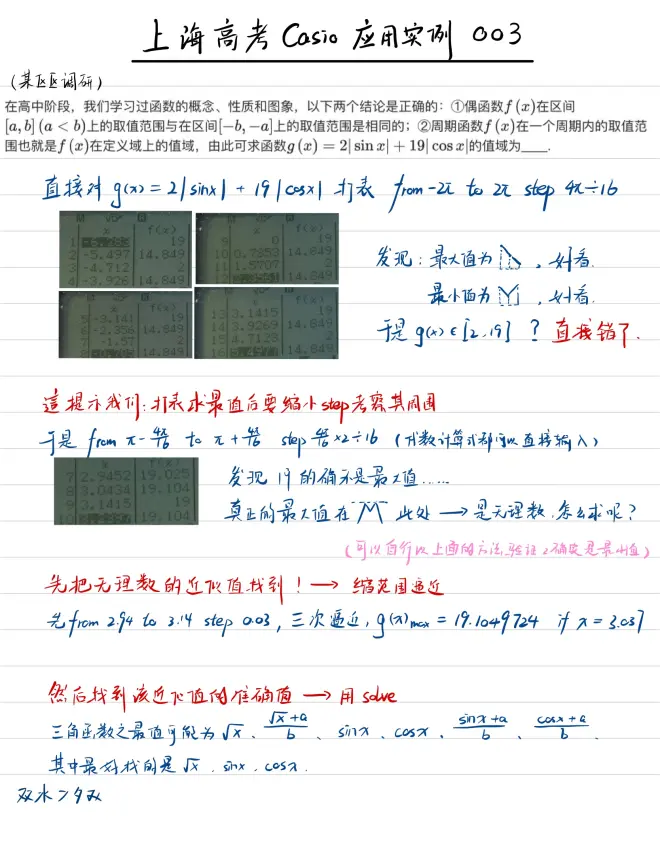 上海高考 Casio 应用实例 003
(某区区调研)
在高中阶段，我们学习过函数的概念、性质和图象，以下两个结论是正确的：①偶函数f(x)在区间
[a,b](a<b)上的取值范围与在区间[-b,-a]上的取值范围是相同的；②周期函数f(x)在一个周期内的取值范
围也就是f(x)在定义域上的值域，由此可求函数g(x)=2|sin x|+19|cos x|的值域为____.
直接对 g(x)=2|sinx|+19|cosx| 打表 from -2π to 2π step 4π÷16
x f(x)
1 -6.283 19
2 -5.497 14.849
3 -4.712 2
4 -3.926 14.849
x f(x)
9 0 19
10 0.7853 14.849
11 1.5707 2
14.849
发现：最大值为，好看.
最小值为，好看.
x f(x)
5 -3.141 19
6 -2.356 14.849
7 -1.57 2
14.849
x f(x)
13 3.1415 19
14 3.9269 14.849
15 4.7123 2
14.849
于是 g(x)∈[2,19] ? 直接错了.
這提示我们：打表求最值后要缩小step考察其周围
于是 from π-4π/16 to π+4π/16 step 4π/16×2÷16 (代数计算式都可以直接输入)
x f(x)
7 2.9452 19.025
8 3.0434 19.104
9 3.1415 19
10 19.104
发现 19 的确不是最大值......
真正的最大值在 此处 → 是无理数,怎么求呢?
(可以自行以上面的方法验证2确实是最小值)
先把无理数的近似值找到！→ 缩范围逼近
先from 2.94 to 3.14 step 0.03, 三次逼近, g(x)max = 19.1049724 if x=3.037
然后找到该近似值的准确值 → 用 solve
三角函数之最值可能为 √x、(√x+a)/b、sinx、cosx、(sinx+a)/b、(cosx+a)/b.
其中最好找的是 √x、sinx、cosx.